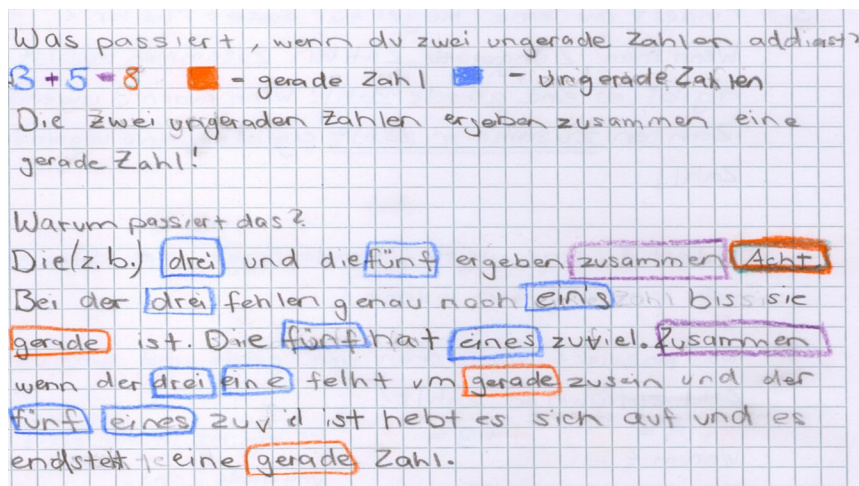 Was passiert, wenn du zwei ungerade Zahlen addierst?
3 + 5 = 8 - gerade Zahl - ungerade Zahlen
Die zwei ungeraden Zahlen ergeben zusammen eine
gerade Zahl!
Warum passiert das?
Die (z.b.) drei und die fünf ergeben zusammen Acht
Bei der drei fehlen genau noch ein's bis sie
gerade ist. Die fünf hat eines zuviel. Zusammen
wenn der drei eine felht um gerade zusein und der
fünf eines zuviel ist hebt es sich auf und es
endsteht eine gerade Zahl.